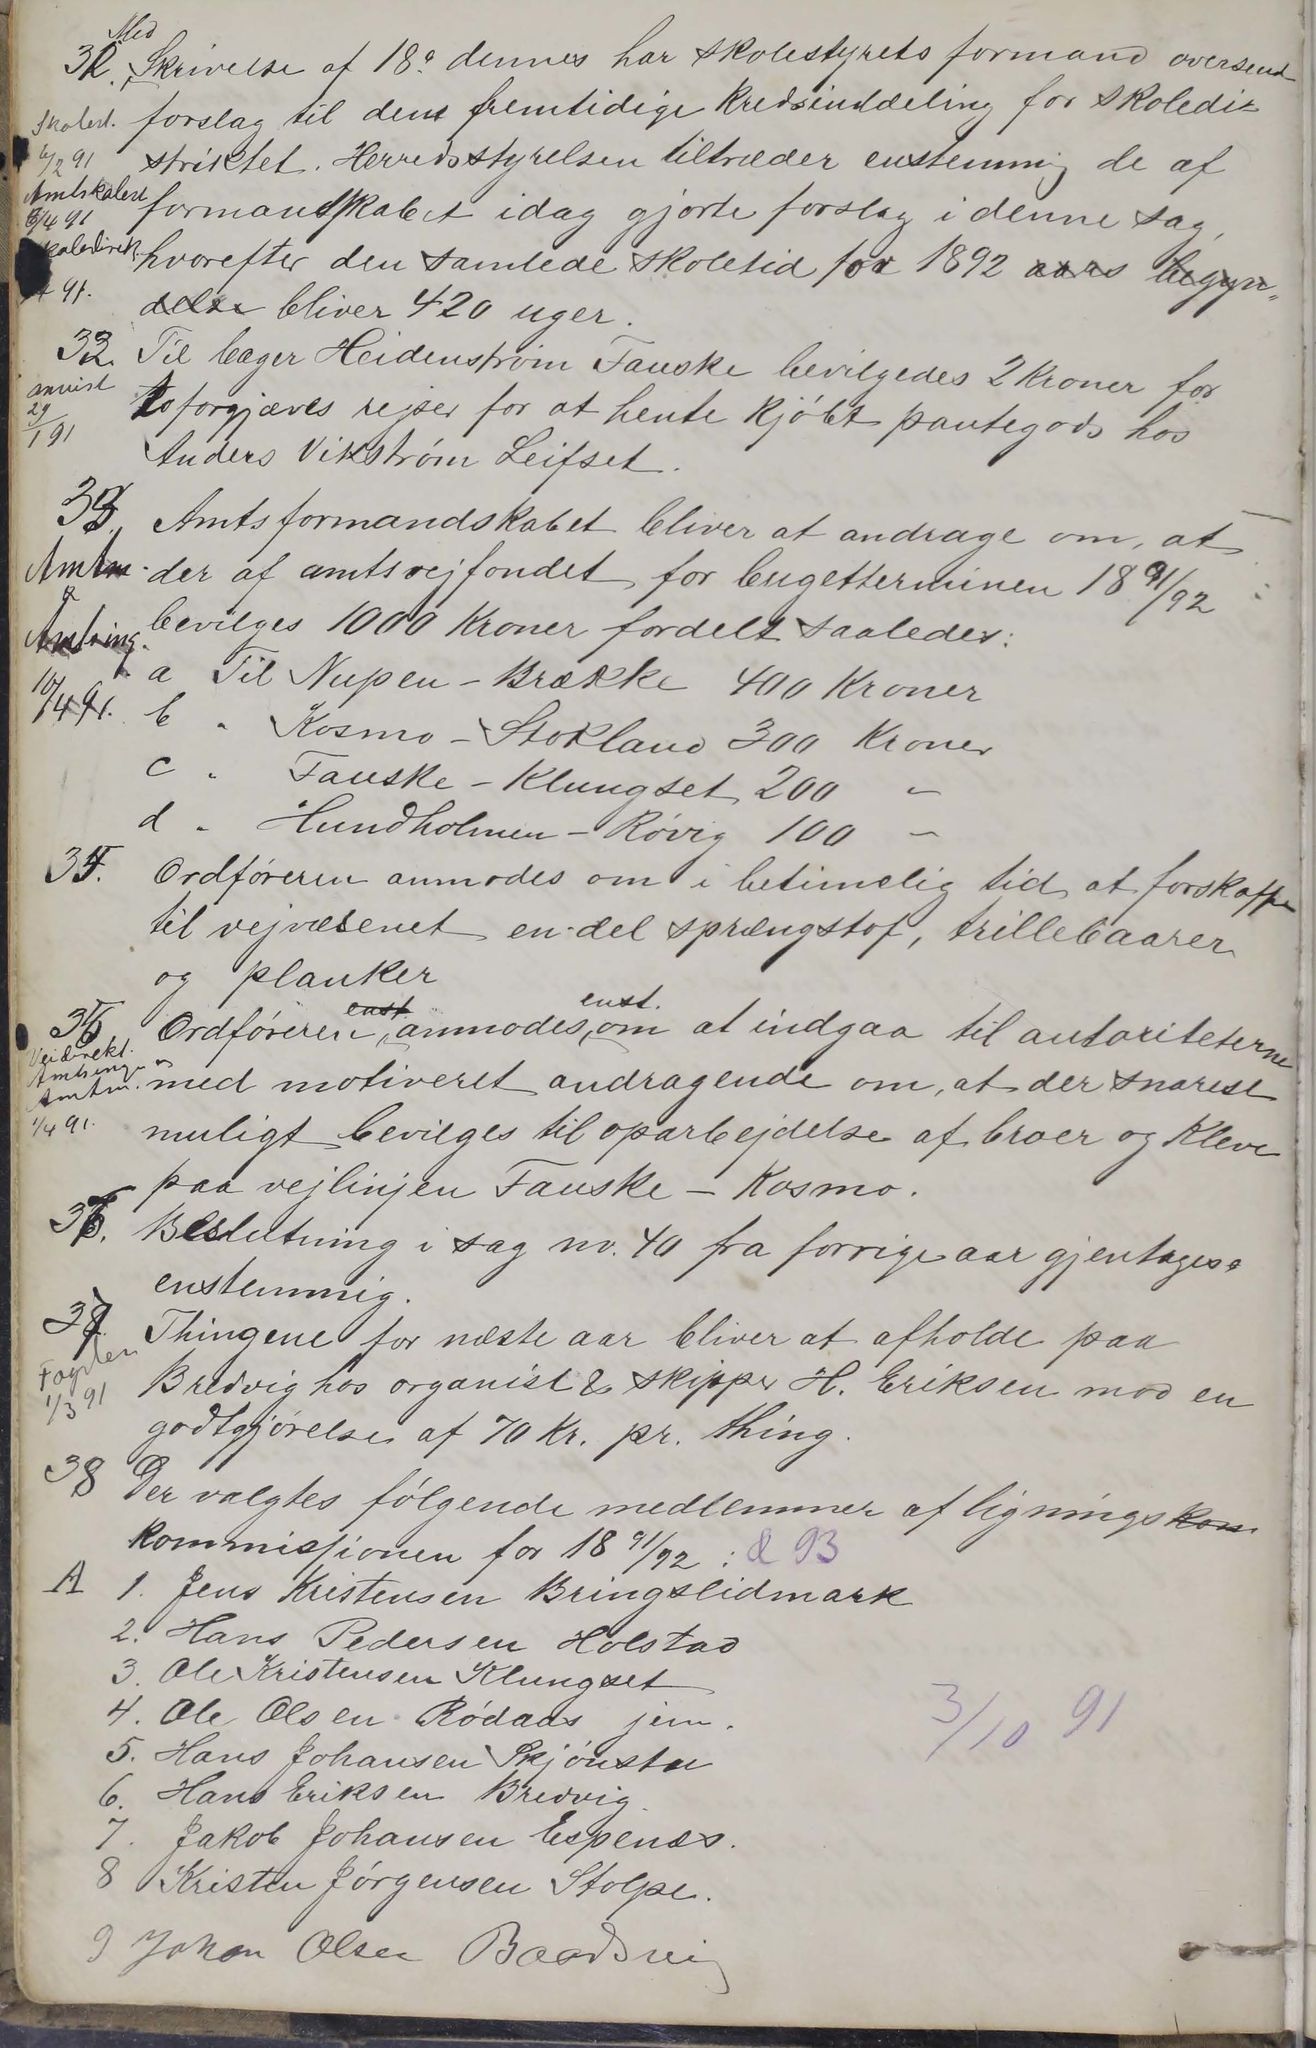 Med
31. Skrivelse af 18de dennes har skolestyrets formand oversend
forslag til den fremtidige kredsinddeling for skoledi-
striktet. Herredsstyrelsen tiltræder enstemmig de af
formandskabet idag gjorte forslag i denne sag,
hvorefter den samlede skoletid for 1892 aars begyn-
delse bliver 420 uger.
Skoled.
6/2 91
Amtskoled
8/4 91
Skoledirek.
91.
32. Til bager Heidenstrøm Fauske bevilgedes 2 kroner for
to forgjæves rejser for at hente kjøbt pantegods hos
Anders Vikstrøm Leifset.
anvist
29/1 91
33. Amtsformandskabet bliver at andrage om, at
der af amtsvejfondet for bugetterminen 18 91/92
bevilges 1000 kroner fordelt saaledes:
Amtm.
&
Amtsing.
10/4 91.
a Til Nupen - Brække 400 Kroner
b " Kosmo - Stokland 300 Kroner
c " Fauske - Klungset 200 "
d " Hundholmen - Røvig 100 "
34. Ordføreren anmodes om i betimelig tid at forskaffe
til vejvæsenet en del sprængstof, trillebaarer
og planker
enst. enst.
35 Ordføreren anmodes om at indgaa til autoriteterne
med motiveret andragende om, at der snarest
muligt bevilges til oparbejdelse af broer og Kleve
paa vejlinjen Fauske - Kosmo.
Veidirekt.
Amtsing.
Amtm.
1/4 91.
36. Beslutning i sag no. 40 fra forrige aar gjentages
enstemmig.
37. Thingene for næste aar bliver at afholde paa
Bredvig hos organist & skipper H. Eriksen mod en
godtgjørelse af 70 Kr. pr. thing.
Fogden
1/3 91
38 Der valgtes følgende medlemmer af lignings kom
kommissjonen for 18 91/92 : & 93
A 1. Jens Kristensen Bringslidmark
2. Hans Pedersen Holstad
3. Ole Kristensen Klungset
4. Ole Olsen Rødaas jun.
3/10 91
5. Hans Johansen Skjønsta
6. Hans Eriksen Bredvig
7. Jakob Johansen Espenæs.
8 Kristen Jørgensen Stolpe.
9 Johan Olsen Baadsvig